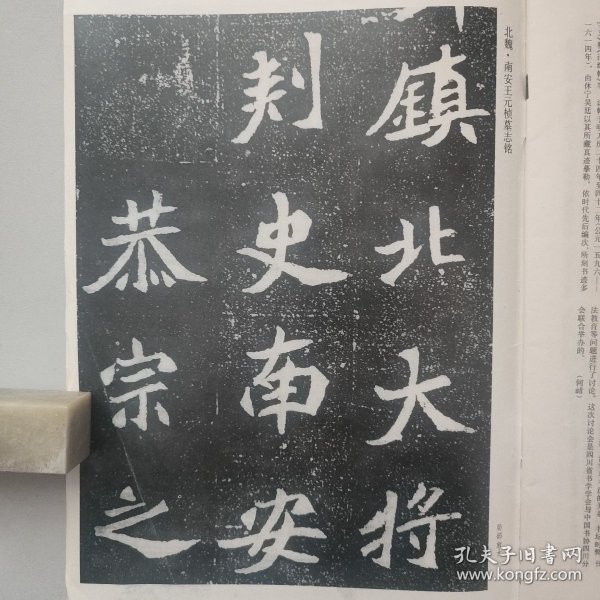 鎮北大将
刾史南安
恭宗之
北魏·南安王元桢墓志铭
一六一四年，由休宁吴廷以其所藏真迹摹勒，依时代先后编次，所刻书迹多
法教育等问题进行了讨论。这次讨论会是四川省书学学会与中国书协四川分
会联合举办的。
孔夫子旧书网
www.kongfz.com